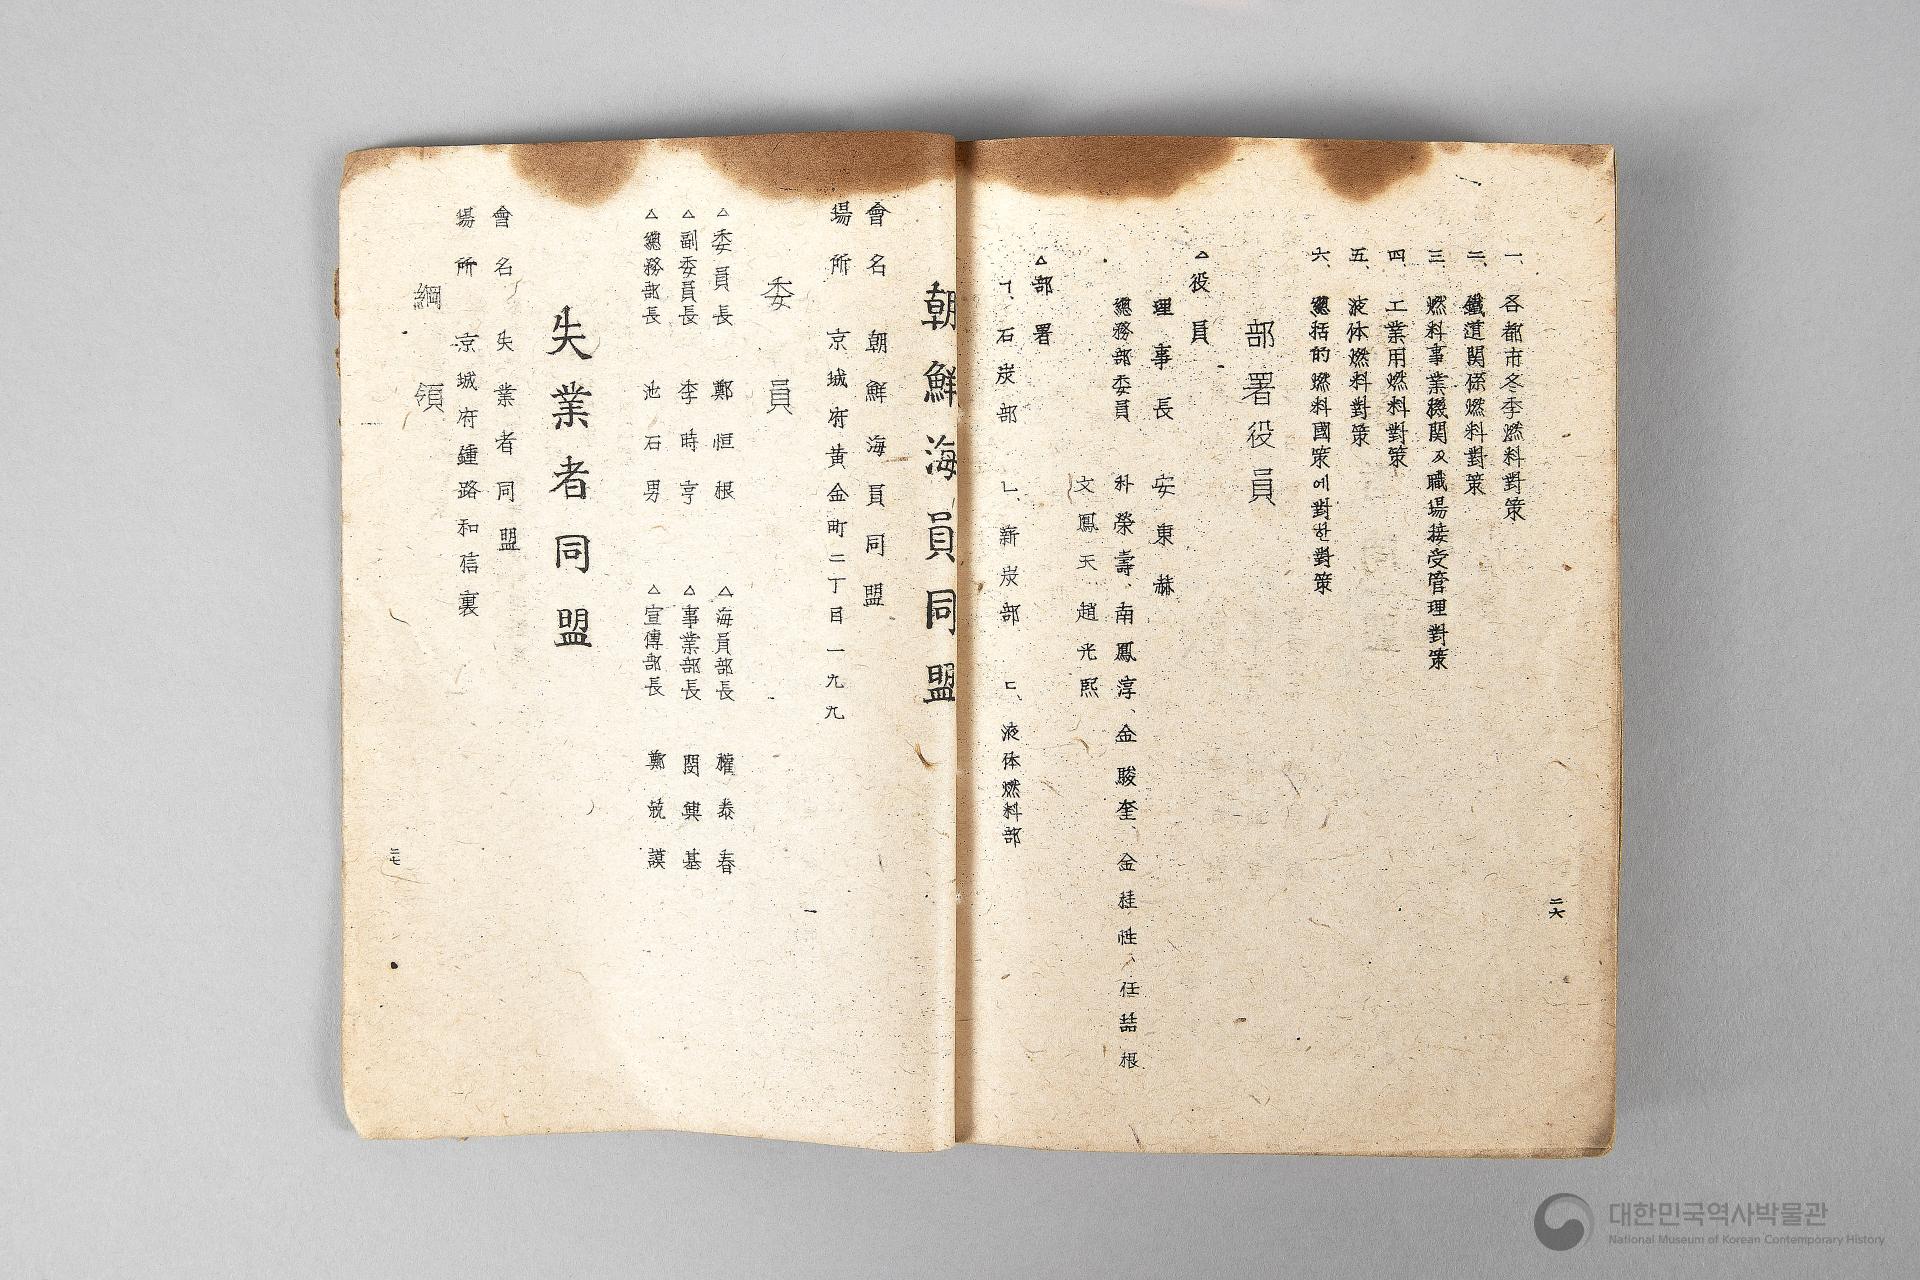 一、各都市冬季燃料對策
二、鐵道関係燃料對策
三、燃料事業機関及職場接受管理對策
四、工業用燃料對策
五、液体燃料對策
六、總括的燃料國策에對한對策
部署役員
△役員
理事長 安東赫
總務部委員 朴榮壽、南鳳淳、金駿奎、金桂性、任喆根
文鳳天 趙光熙
△部署
ㄱ、石炭部 ㄴ、薪炭部 ㄷ、液体燃料部
二六
朝鮮海員同盟
會名 朝鮮海員同盟
場所 京城府黃金町二丁目一九九
委員
△委員長 鄭恒根 △海員部長 權泰春
△副委員長 李時亨 △事業部長 閔興基
△總務部長 池石男 △宣傳部長 鄭兢謨
失業者同盟
會名 失業者同盟
場所 京城府鍾路和信裏
綱領
二七
대한민국역사박물관
National Museum of Korean Contemporary History